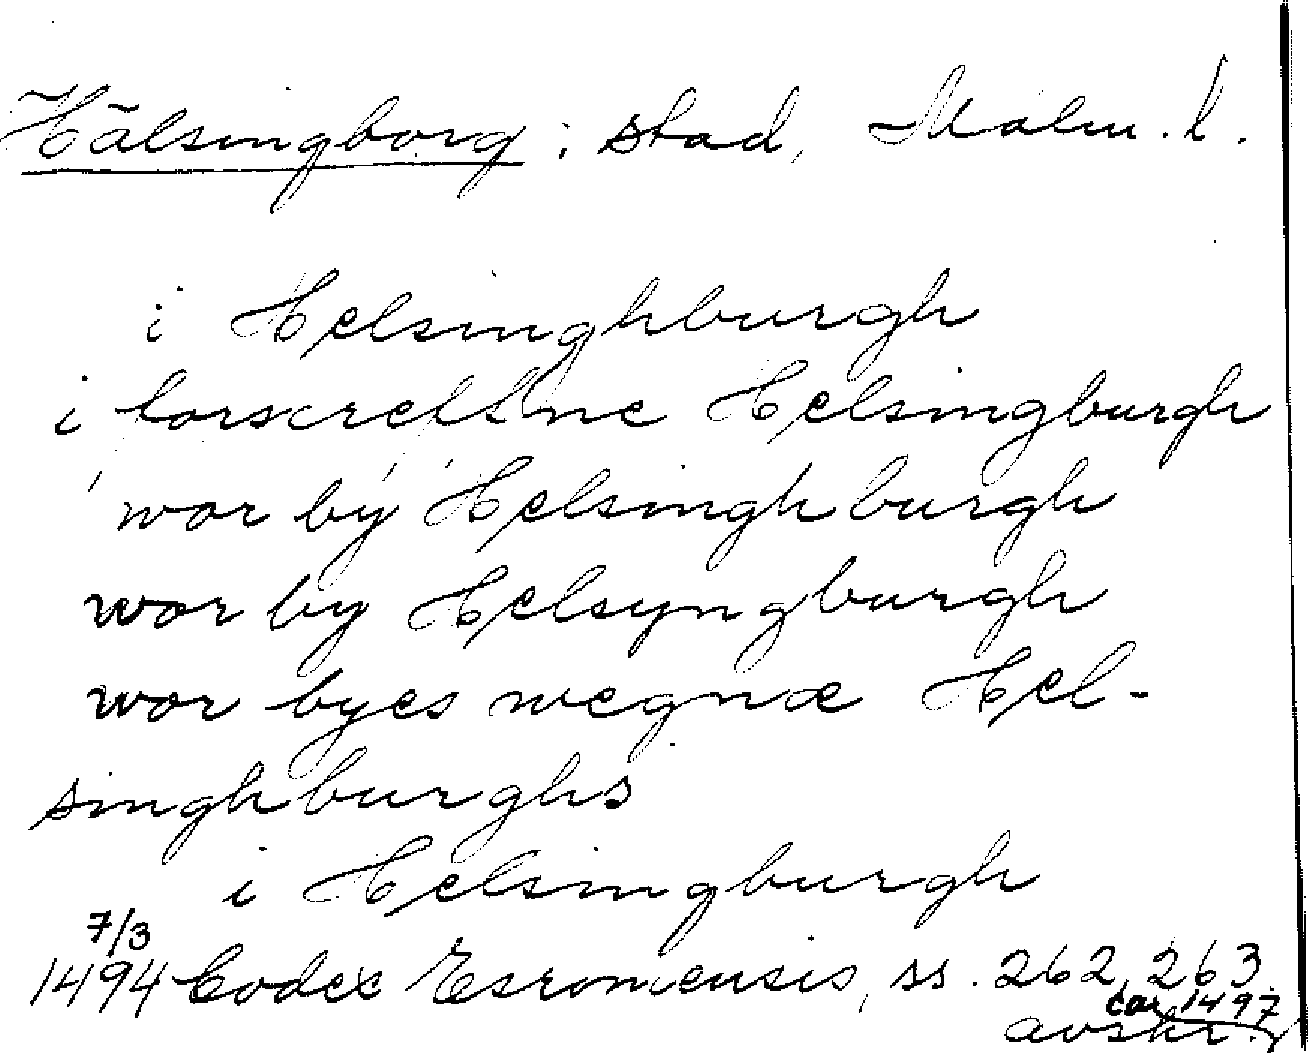 Hälsingborg: stad, Malm. l.
i Helsinghburgh
i forscreffne Helsingburgh
wor by Helsinghburgh
wor by Helsyngburgh
wor byes wegnæ Hel-
singhburghs
i Helsingburgh
7/3
1494 Codex Esromensis, ss. 262, 263.
ca. 1497
avskr.